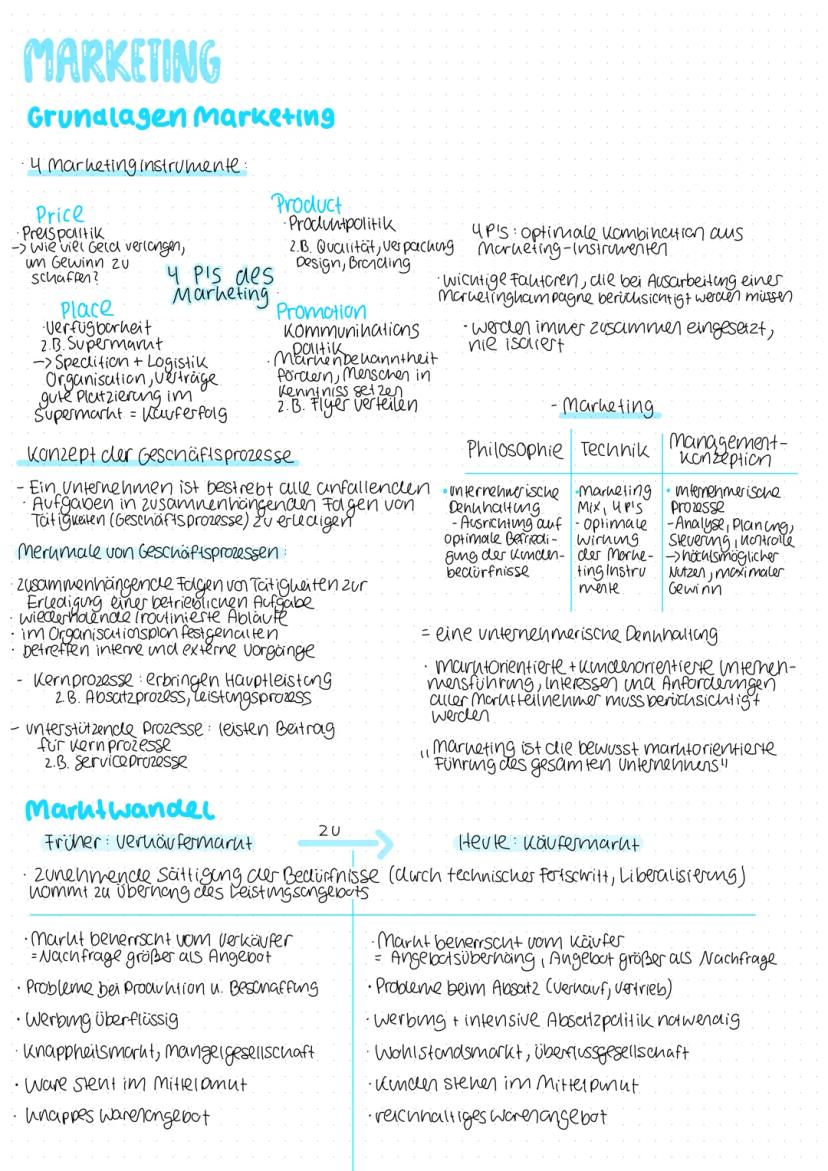 MARKETING
Grundlagen Marketing
· 4 Marketinginstrumente:
Price
· Preispolitik
-> wie viel Geld verlangen,
um Gewinn zu
schaffen?
Product
· Produktpolitik
z.B. Qualität, Verpackung
Design, Branding
4 P's des
Marketing
Place
· Verfügbarkeit
z.B. Supermarkt
-> Spedition + Logistik
Organisation, Verträge
gute Platzierung im
Supermarkt = Kauferfolg
Promotion
Kommunikations
politik
· Markenbekanntheit
fördern, Menschen in
Kenntniss setzen
z.B. Flyer verteilen
4 P's: optimale Kombination aus
Marketing-Instrumenten
· wichtige Faktoren, die bei Ausarbeitung einer
Marketingkampagne berücksichtigt werden müssen
· werden immer zusammen eingesetzt,
nie isoliert
Konzept der Geschäftsprozesse
- Ein Unternehmen ist bestrebt alle anfallenden
· Aufgaben in zusammenhängenden Folgen von
Tätigkeiten (Geschäftsprozesse) zu erledigen
Merkmale von Geschäftsprozessen:
· zusammenhängende Folgen von Tätigkeiten zur
Erledigung einer betrieblichen Aufgabe
· wiederholende/routinierte Abläufe
· im Organisationsplan festgehalten
· betreffen interne und externe Vorgänge
- Kernprozesse: erbringen Hauptleistung
z.B. Absatzprozess, Leistungsprozess
- unterstützende Prozesse: leisten Beitrag
für Kernprozesse
z.B. Serviceprozesse
- Marketing
Philosophie
· unternehmerische
Denkhaltung
- Ausrichtung auf
optimale Befriedi-
gung der Kunden-
bedürfnisse
Technik
· Marketing
Mix, 4 P's
- optimale
Wirkung
der Marke-
tinginstru
mente
Management-
konzeption
· unternehmerische
Prozesse
- Analyse, Planung,
Steuerung, Kontrolle
-> höchstmöglicher
Nutzen, maximaler
Gewinn
= eine unternehmerische Denkhaltung
· marktorientierte + kundenorientierte Unterneh-
mensführung, Interessen und Anforderungen
aller Marktteilnehmer muss berücksichtigt
werden
„Marketing ist die bewusst marktorientierte
Führung des gesamten Unternehmens"
Marktwandel
Früher: Verkäufermarkt
zu
Heute: Käufermarkt
· zunehmende Sättigung der Bedürfnisse (durch technischer Fortschritt, Liberalisierung)
kommt zu Überhang des Leistungsangebots
· Markt beherrscht vom Verkäufer
= Nachfrage größer als Angebot
· Probleme bei Produktion u. Beschaffung
· Werbung überflüssig
· Knappheitsmarkt, Mangelgesellschaft
· Ware steht im Mittelpunkt
· knappes Warenangebot
· Markt beherrscht vom Käufer
= Angebotsüberhang, Angebot größer als Nachfrage
· Probleme beim Absatz (Verkauf, Vertrieb)
· Werbung + intensive Absatzpolitik notwendig
· Wohlstandsmarkt, Überflussgesellschaft
· Kunden stehen im Mittelpunkt
· reichhaltiges Warenangebot